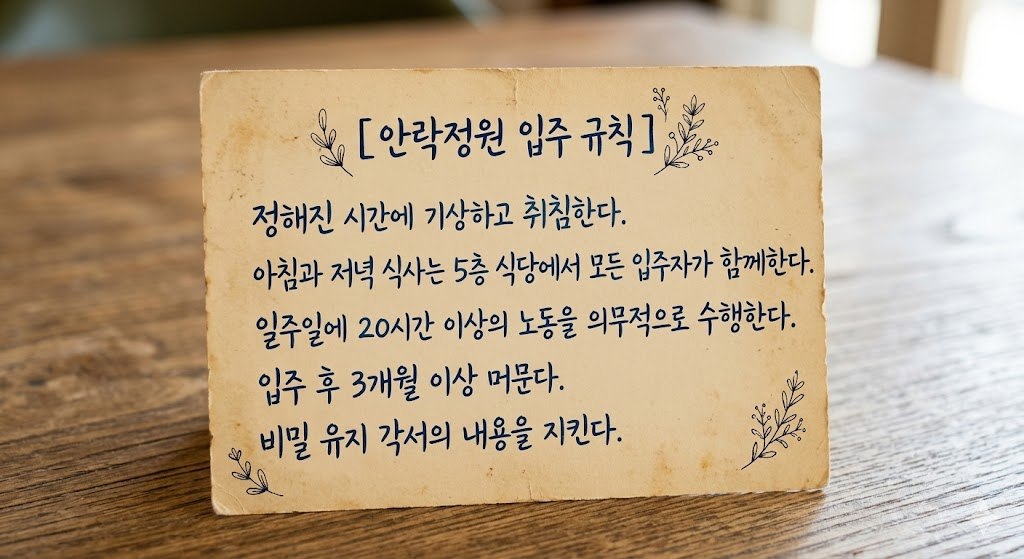 [안락정원 입주 규칙]
정해진 시간에 기상하고 취침한다.
아침과 저녁 식사는 5층 식당에서 모든 입주자가 함께한다.
일주일에 20시간 이상의 노동을 의무적으로 수행한다.
입주 후 3개월 이상 머문다.
비밀 유지 각서의 내용을 지킨다.